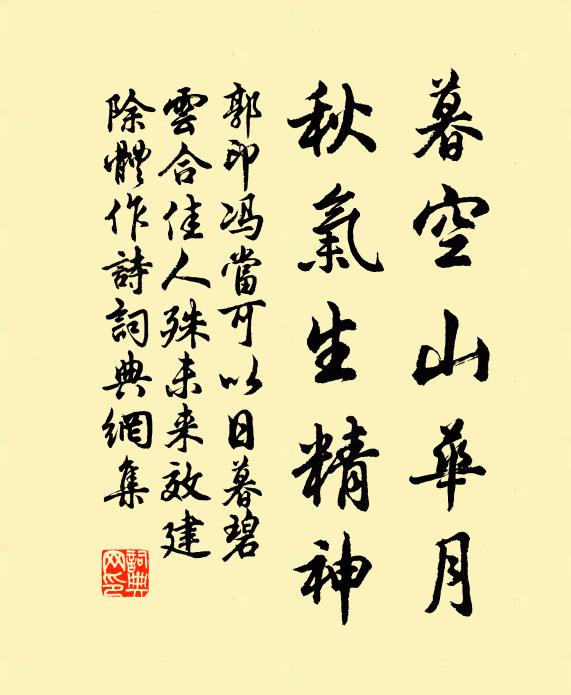 暮空山華月
秋氣生精神
郭印馮當可以日暮碧
雲合佳人殊未来效建
除體作詩詞典網集
詞典網印